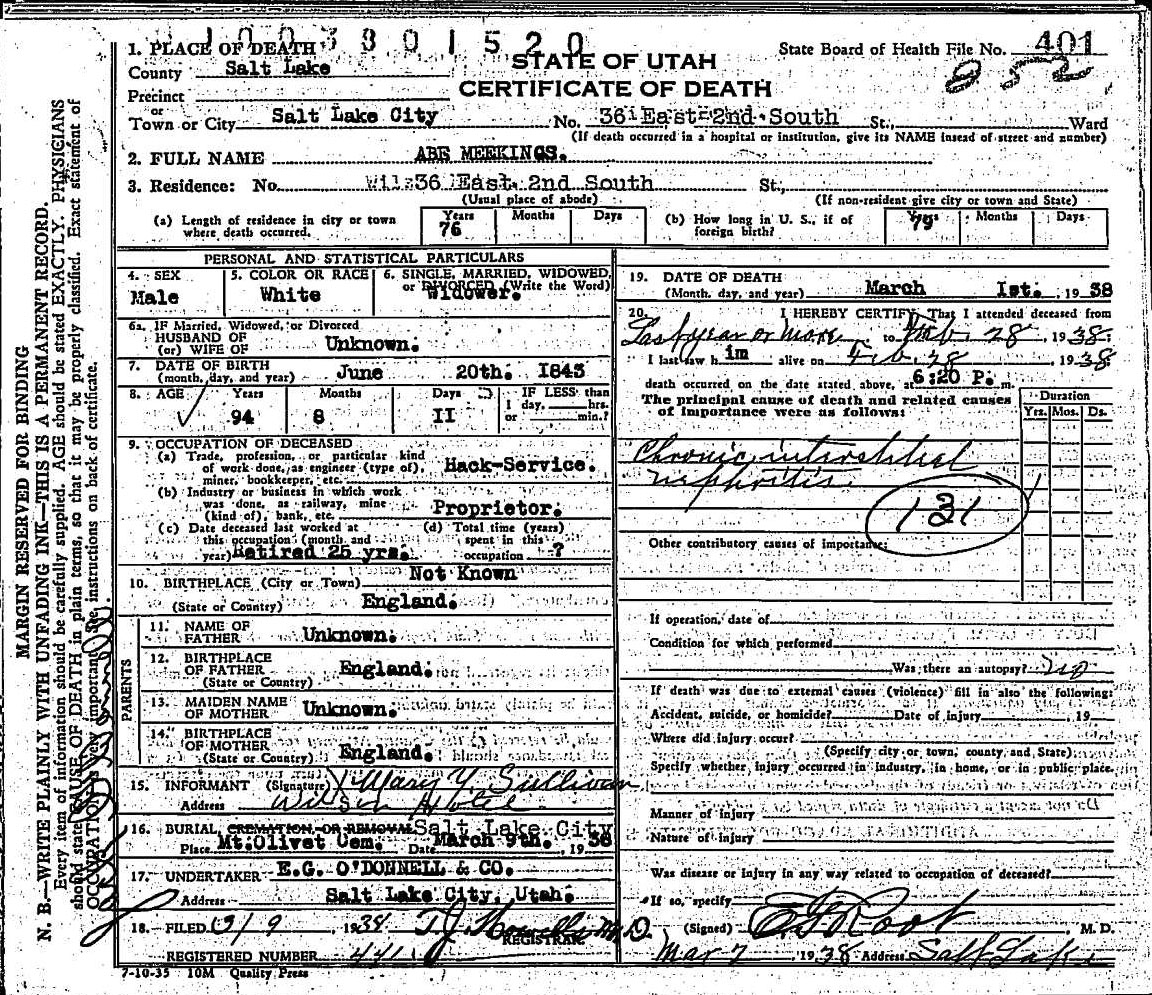 1. PLACE OF DEATH
County Salt Lake
Precinct
or
Town or City Salt Lake City
STATE OF UTAH
CERTIFICATE OF DEATH
State Board of Health File No. 401
852
No. 36 East 2nd South St., Ward
(If death occurred in a hospital or institution, give its NAME insead of street and number)
2. FULL NAME ABE MEEKINGS.
3. Residence: No. 36 East 2nd South St.,
(Usual place of abode)
(If non-resident give city or town and State)
(a) Length of residence in city or town where death occurred. Years 76 Months Days
(b) How long in U. S., if of foreign birth? Yrs. 79 Months Days
PERSONAL AND STATISTICAL PARTICULARS
4. SEX Male
5. COLOR OR RACE White
6. SINGLE, MARRIED, WIDOWED, or DIVORCED (Write the Word) Widower.
6a. IF Married, Widowed, or Divorced
HUSBAND OF
(or) WIFE OF Unknown.
7. DATE OF BIRTH
(month, day, and year) June 20th. I843
8. AGE Years 94 Months 8 Days II IF LESS than 1 day, hrs. or min.?
9. OCCUPATION OF DECEASED
(a) Trade, profession, or particular kind of work done, as engineer (type of), miner, bookkeeper, etc. Hack-Service.
(b) Industry or business in which work was done, as railway, mine (kind of), bank, etc. Proprietor.
(c) Date deceased last worked at this occupation (month and year) Retired 25 yrs.
(d) Total time (years) spent in this occupation ?
10. BIRTHPLACE (City or Town) Not Known
(State or Country) England.
PARENTS
11. NAME OF FATHER Unknown.
12. BIRTHPLACE OF FATHER (State or Country) England.
13. MAIDEN NAME OF MOTHER Unknown.
14. BIRTHPLACE OF MOTHER (State or Country) England.
15. INFORMANT (Signature) Mary Y. Sullivan
Address Wilson Hotel
16. BURIAL, CREMATION, OR REMOVAL Salt Lake City
Place Mt. Olivet Cem. Date March 9th. , 1938
17. UNDERTAKER E.G. O'DONNELL & CO.
Address Salt Lake City, Utah.
18. FILED 3/9 1938 T.J. Howells M.D.
REGISTRAR
REGISTERED NUMBER 441
7-10-35 10M Quality Press
19. DATE OF DEATH
(Month, day, and year) March Ist. , 1938
20. I HEREBY CERTIFY, That I attended deceased from
Last year or more to Feb. 28, 1938
I last saw him alive on Feb. 28 1938
death occurred on the date stated above, at 6:20 P. m.
The principal cause of death and related causes of importance were as follows:
Duration
Yrs. Mos. Ds.
Chronic interstitial
nephritis.
131
Other contributory causes of importance:
If operation, date of
Condition for which performed
Was there an autopsy? no
If death was due to external causes (violence) fill in also the following:
Accident, suicide, or homicide? Date of injury , 19
Where did injury occur?
(Specify city or town, county and State)
Specify whether injury occurred in industry, in home, or in public place.
Manner of injury
Nature of injury
Was disease or injury in any way related to occupation of deceased?
If so, specify
(Signed) E F Root M. D.
Mar 7, 1938 Address Salt Lake
MARGIN RESERVED FOR BINDING
N. B.—WRITE PLAINLY WITH UNFADING INK—THIS IS A PERMANENT RECORD.
Every item of information should be carefully supplied. AGE should be stated EXACTLY. PHYSICIANS
should state CAUSE OF DEATH in plain terms, so that it may be properly classified. Exact statement of
OCCUPATION is very important. See instructions on back of certificate.